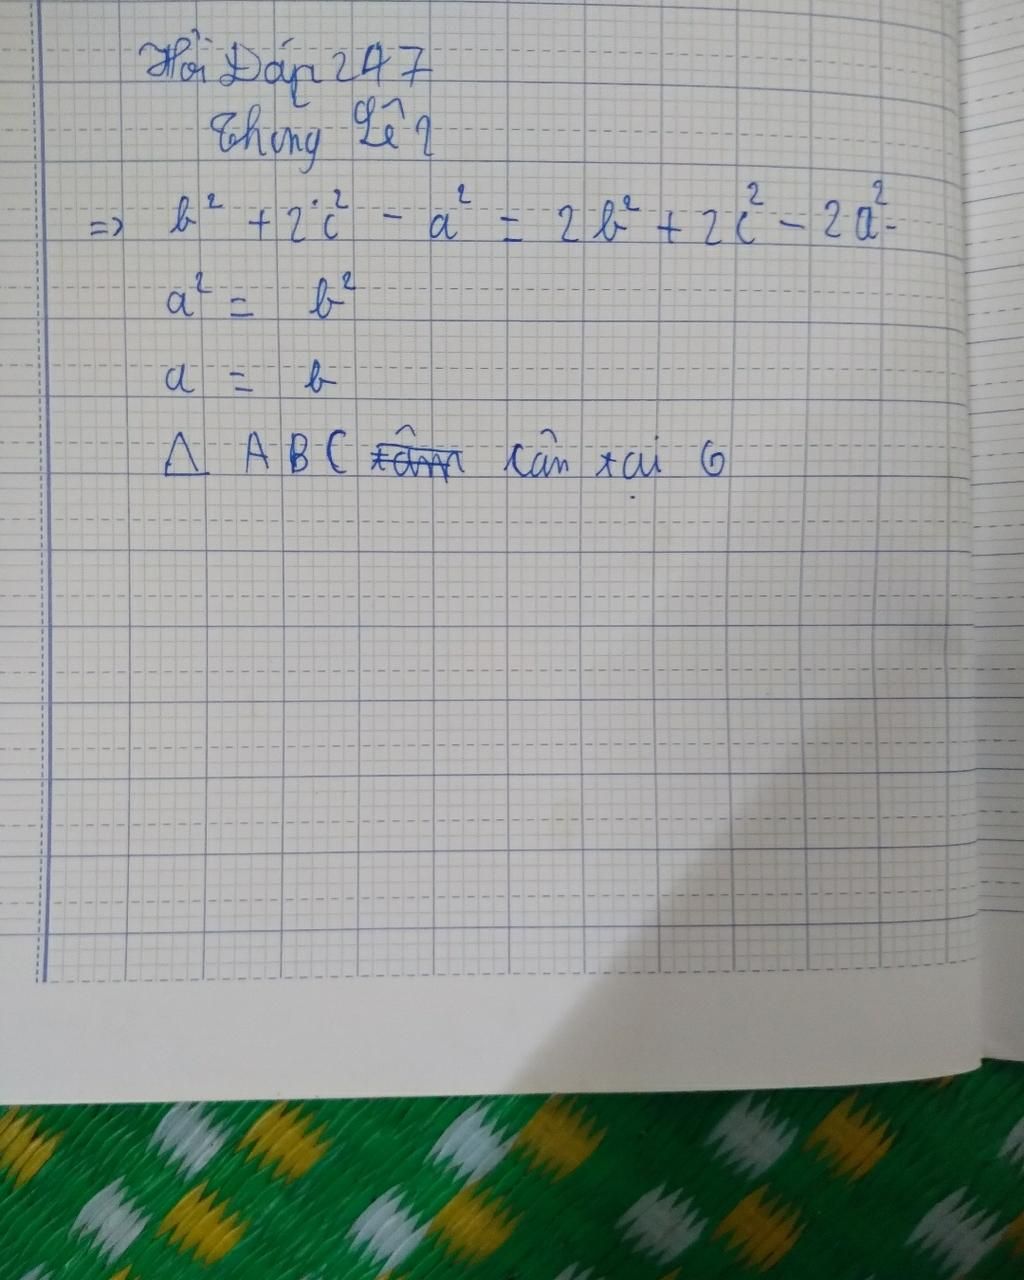 Hỏi Đáp 247
Thông Lê 2
=> b² + 2c² - a² = 2b² + 2c² - 2a²
a² = b²
a = b
Δ ABC cân tại C